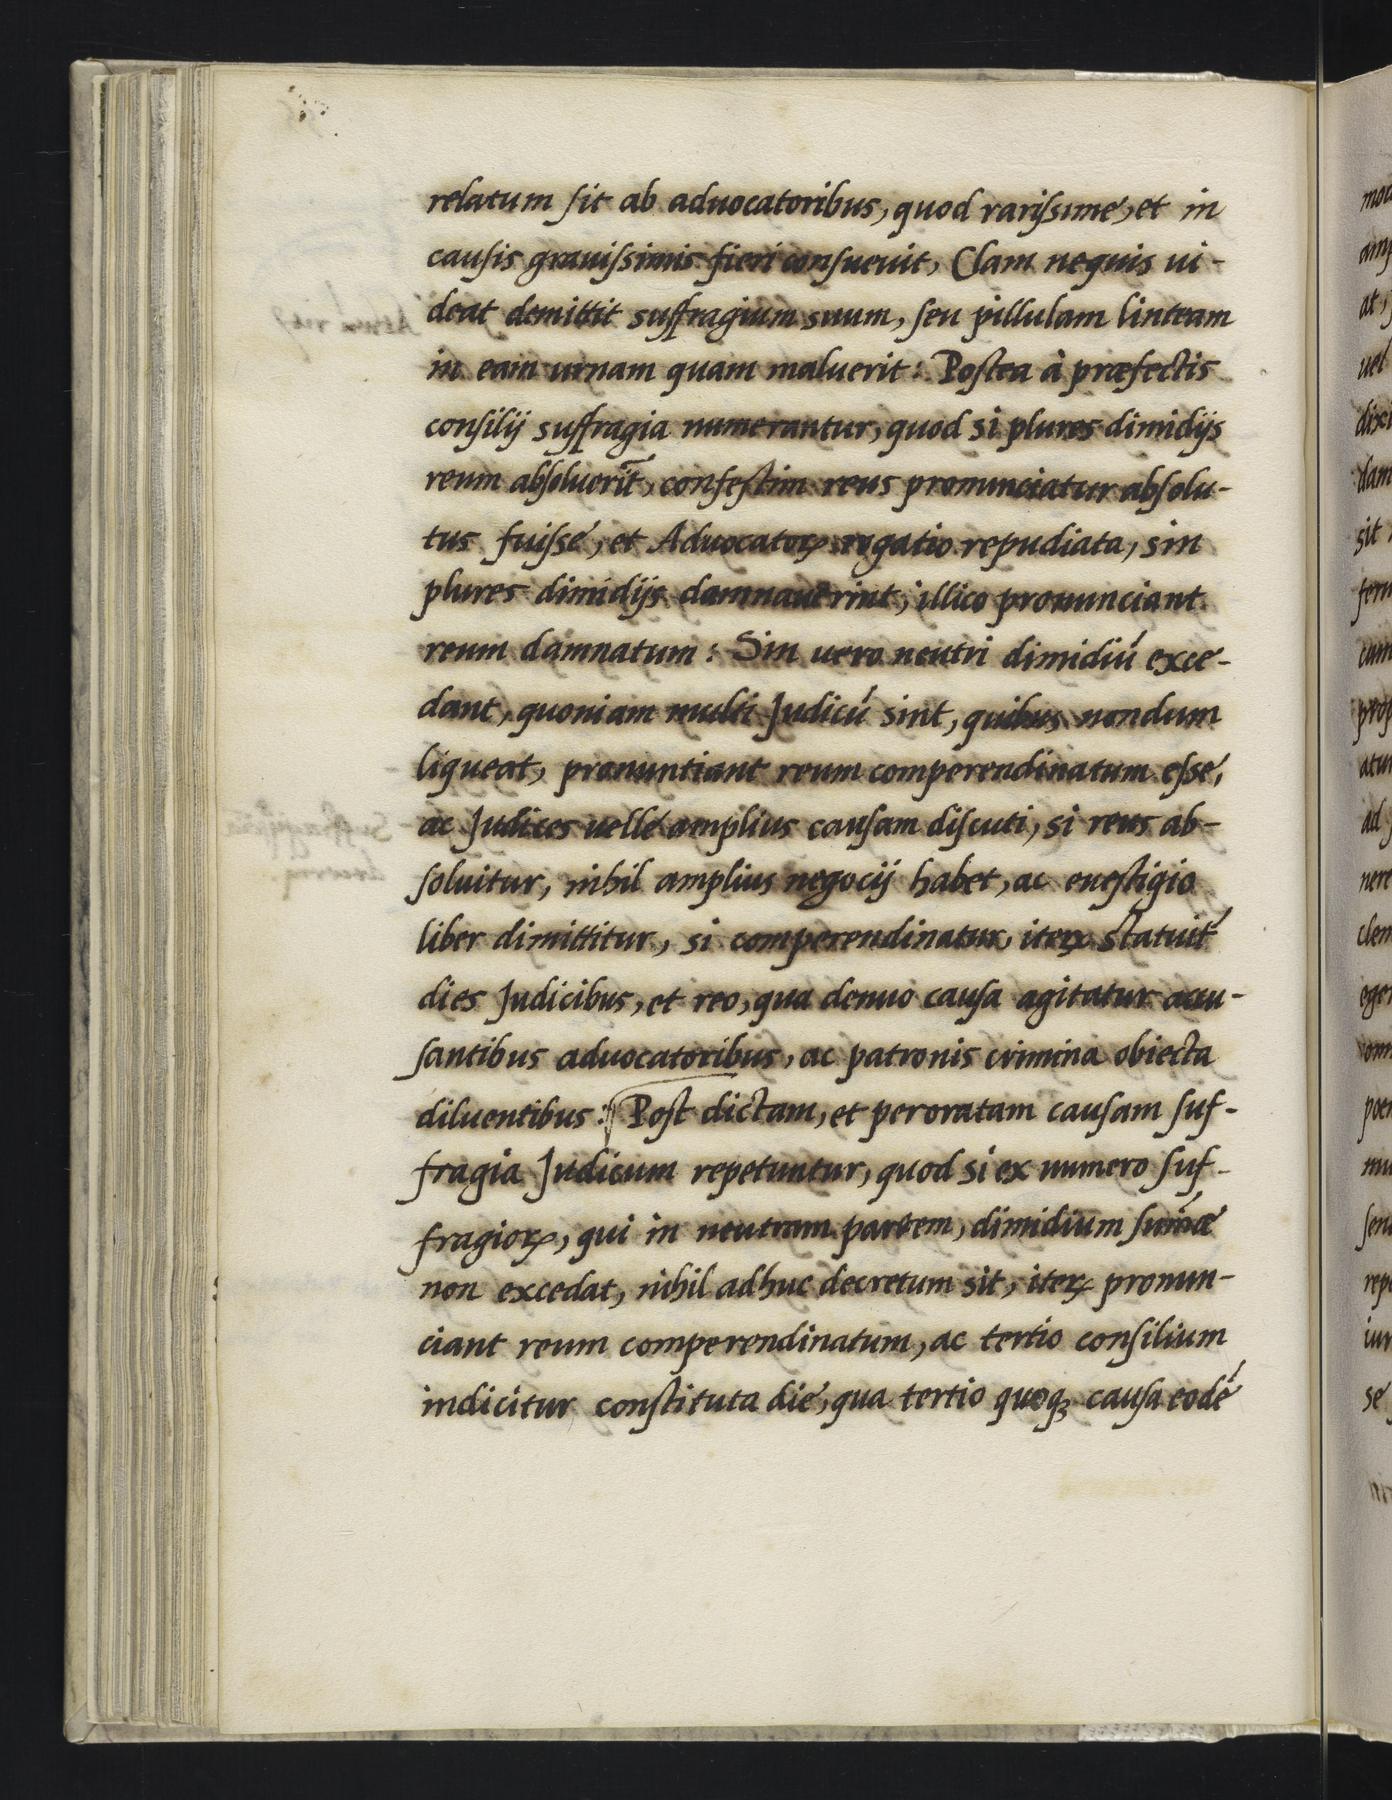 relatum sit ab aduocatoribus, quod rarissime, et in
causis grauissimis fieri consueuit, Clam nequis ui-
deat demittit suffragium suum, seu pillulam linteam
in eam urnam quam maluerit: Postea à præfectis
consilij suffragia numerantur, quod si plures dimidijs
reum absoluerit̄, confestim reus pronunciatur absolu-
tus fuisse, et Aduocatoꝝ rogatio repudiata, sin
plures dimidijs damnauerint, illico pronunciant
reum damnatum: Sin uero neutri dimidiú exce-
dant, quoniam multi Judicú sint, quibus nondum
liqueat, pronuntiant reum comperendinatum esse,
ac Judices uelle amplius causam discuti, si reus ab-
soluitur, nihil amplius negocij habet, ac euestigio
liber dimittitur, si comperendinatur, iteꝝ statuit́
dies Judicibus, et reo, qua denuo causa agitatur accu-
santibus aduocatoribus, ac patronis crimina obiecta
diluentibus: Post dictam, et peroratam causam suf-
fragia Judicum repetuntur, quod si ex numero suf-
fragioꝝ, qui in neutram partem, dimidium sum̃æ
non excedat, nihil adhuc decretum sit, iteꝝ pronun-
ciant reum comperendinatum, ac tertio consilium
indicitur constituta die, qua tertio quoqꝫ causa eodé